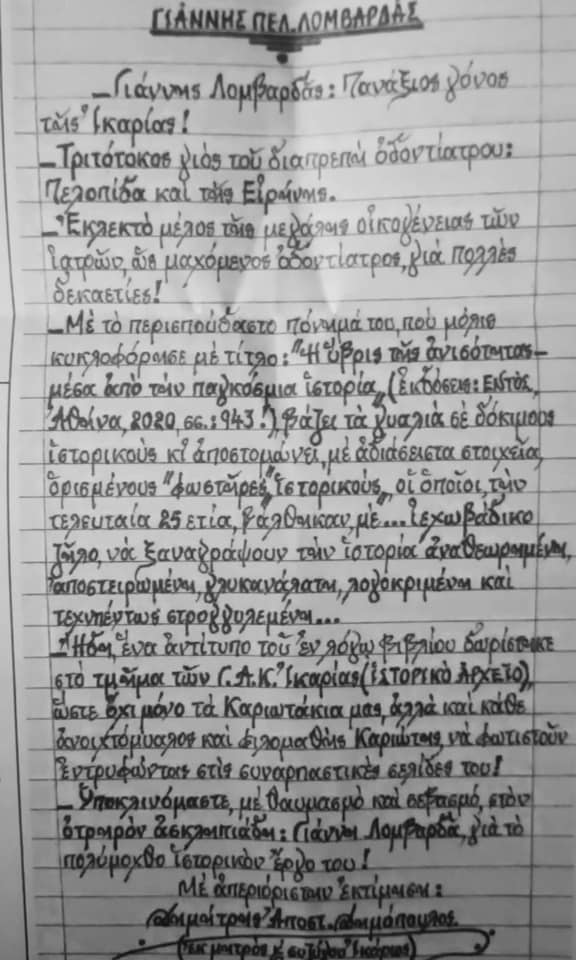 ΓΙΑΝΝΗΣ ΠΕΛ. ΛΟΜΒΑΡΔΑΣ
–Γιάννης Λομβαρδᾶς: Πανάξιος γόνος
τῆς Ἰκαρίας!
–Τριτότοκος γιὸς τοῦ διαπρεπῆ ὀδοντίατρου:
Πελοπίδα καὶ τῆς Εἰρήνης.
–Ἐκλεκτὸ μέλος τῆς μεγάλης οἰκογένειας τῶν
ἰατρῶν, ὡς μαχόμενος ὀδοντίατρος, γιὰ πολλὲς
δεκαετίες!
–Μὲ τὸ περισπούδαστο πόνημά του, ποὺ μόλις
κυκλοφόρησε μὲ τίτλο: "Ἡ ὕβρις τῆς ἀνισότητας–
μέσα ἀπὸ τὴν παγκόσμια ἱστορία" (ἐκδόσεις: ΕΝΤΟΣ,
Ἀθήνα, 2020, σσ.: 943!), βάζει τὰ γυαλιὰ σὲ δόκιμους
ἱστορικοὺς κι ἀποστομώνει, μὲ ἀδιάσειστα στοιχεῖα,
ὁρισμένους "φωστῆρες" ἱστορικούς, οἱ ὁποῖοι, τὴν
τελευταία 25ετία, βάλθηκαν, μὲ... ἰεχωβάδικο
ζῆλο, νὰ ξαναγράψουν τὴν ἱστορία ἀναθεωρημένη,
ἀποστειρωμένη, γλυκανάλατη, λογοκριμένη καὶ
τεχνηέντως στρογγυλεμένη...
–Ἤδη, ἕνα ἀντίτυπο τοῦ ἐν λόγῳ βιβλίου δωρίστηκε
στὸ τμῆμα τῶν Γ.Α.Κ. Ἰκαρίας (ΙΣΤΟΡΙΚΟ ΑΡΧΕΙΟ),
ὥστε ὄχι μόνο τὰ Καριωτάκια μας, ἀλλὰ καὶ κάθε
ἀνοιχτόμυαλος καὶ φιλομαθὴς Καριώτης, νὰ φωτιστοῦν
ἐντρυφώντας στὶς συναρπαστικὲς σελίδες του!
–Ὑποκλινόμαστε, μὲ θαυμασμὸ καὶ σεβασμό, στὸν
ὀτρηρὸν ἀσκληπιάδη: Γιάννη Λομβαρδᾶ, γιὰ τὸ
πολύμοχθο ἱστορικὸν ἔργο του!
Μὲ ἀπεριόριστην ἐκτίμηση:
Δημήτρης Ἀποστ. Δημόπουλος
(ἐκ μητρὸς κ συζύγου Ἰκάριος)